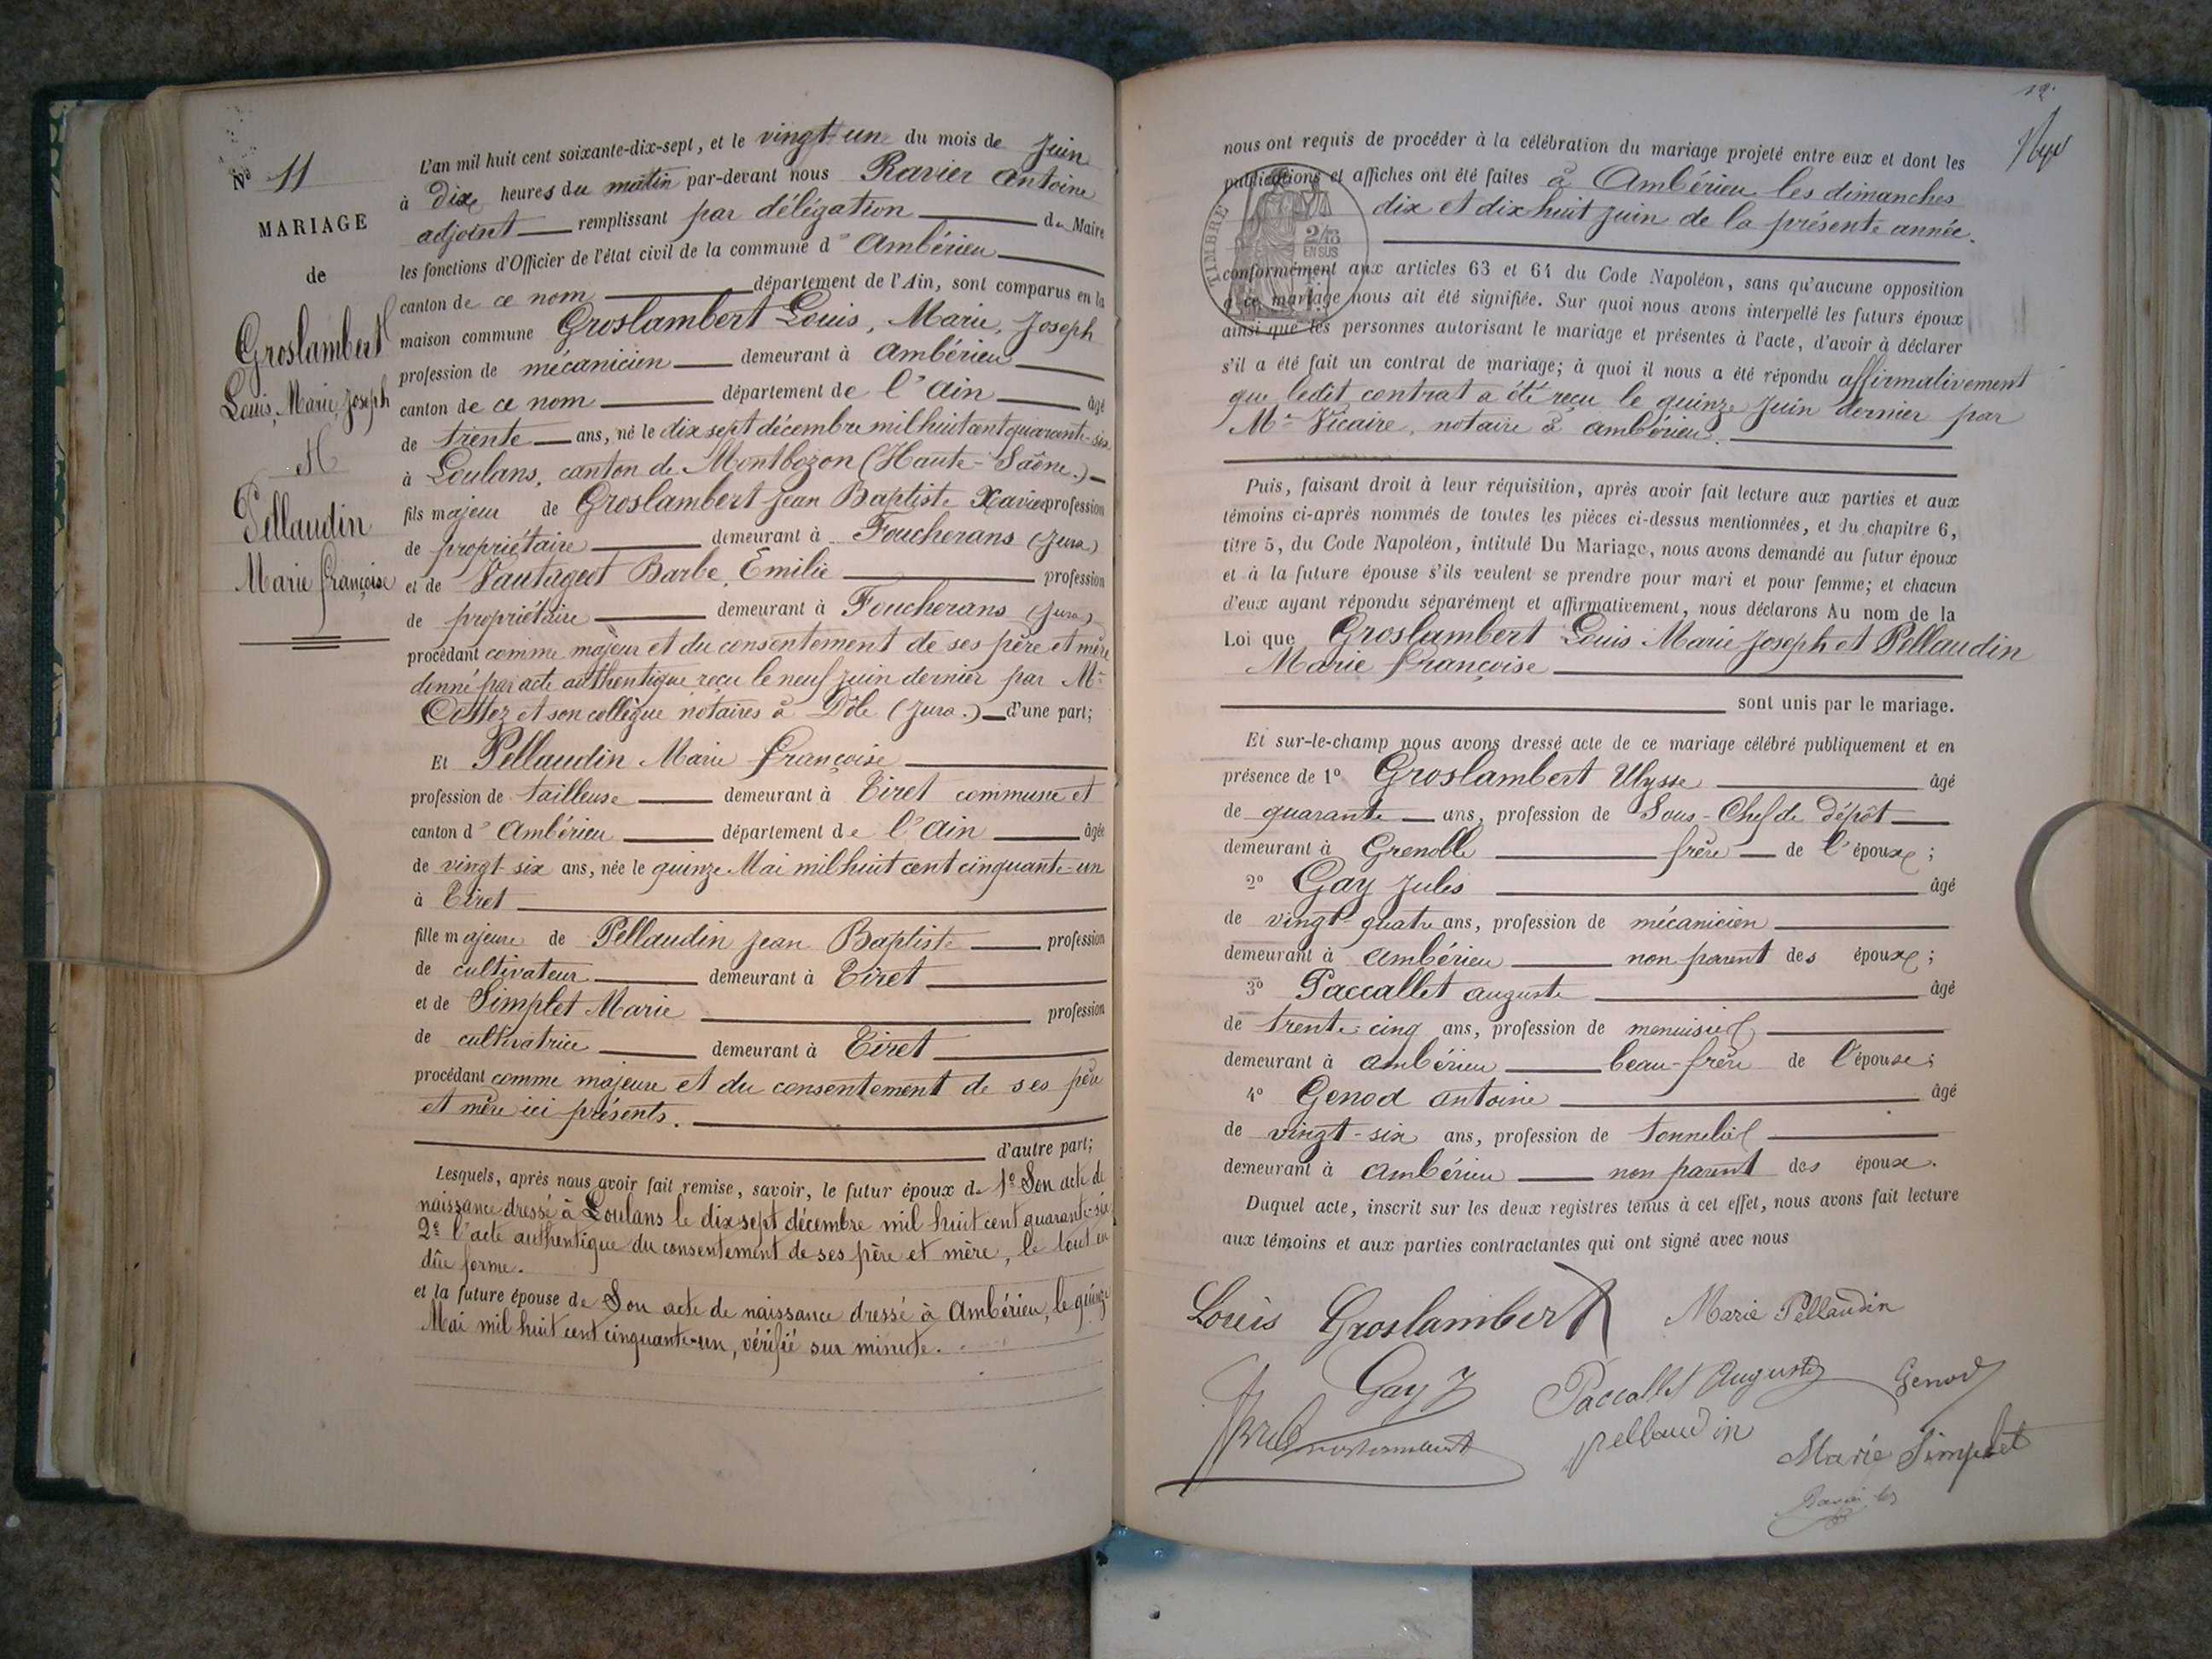 Nº 11
MARIAGE
de
Groslambert
Louis, Marie, Joseph
et
Pellaudin
Marie françoise
L'an mil huit cent soixante-dix-sept, et le vingt-un du mois de Juin
à dix heures du matin par-devant nous Ravier Antoine
adjoint remplissant par délégation du Maire
les fonctions d'Officier de l'état civil de la commune d'Ambérieu
canton de ce nom département de l'Ain, sont comparus en la
maison commune Groslambert Louis, Marie, Joseph
profession de mécanicien demeurant à Ambérieu
canton de ce nom département de l'Ain âgé
de trente ans, né le dix sept décembre mil huit cent quarante-six
à Loulans, canton de Montbozon (Haute-Saône.)
fils majeur de Groslambert Jean Baptiste Xavier profession
de propriétaire demeurant à Foucherans (Jura)
et de Vautageot Barbe, Emilie profession
de propriétaire demeurant à Foucherans (Jura)
procédant comme majeur et du consentement de ses père et mère
donné par acte authentique reçu le neuf juin dernier par Me
et son collègue notaires à Dôle (Jura.) d'une part;
Et Pellaudin Marie françoise
profession de tailleuse demeurant à Tiret commune et
canton d'Ambérieu département de l'Ain âgée
de vingt-six ans, née le quinze Mai mil huit cent cinquante-un
à Tiret
fille majeure de Pellaudin Jean Baptiste profession
de cultivateur demeurant à Tiret
et de Simplet Marie profession
de cultivatrice demeurant à Tiret
procédant comme majeure et du consentement de ses père
et mère ici présents.
d'autre part;
Lesquels, après nous avoir fait remise, savoir, le futur époux de 1º Son acte de
naissance dressé à Loulans le dix sept décembre mil huit cent quarante-six
2º l'acte authentique du consentement de ses père et mère, le tout en
dûe forme.
et la future épouse de Son acte de naissance dressé à Ambérieu, le quinze
Mai mil huit cent cinquante-un, vérifié sur minute.
12
nous ont requis de procéder à la célébration du mariage projeté entre eux et dont les
publications et affiches ont été faites à Ambérieu les dimanches
dix et dix huit juin de la présente année.
TIMBRE
2/13
EN SUS
conformément aux articles 63 et 64 du Code Napoléon, sans qu'aucune opposition
à ce mariage nous ait été signifiée. Sur quoi nous avons interpellé les futurs époux
ainsi que les personnes autorisant le mariage et présentes à l'acte, d'avoir à déclarer
s'il a été fait un contrat de mariage; à quoi il nous a été répondu affirmativement
que ledit contrat a été reçu le quinze juin dernier par
Me Vicaire, notaire à Ambérieu.
Puis, faisant droit à leur réquisition, après avoir fait lecture aux parties et aux
témoins ci-après nommés de toutes les pièces ci-dessus mentionnées, et du chapitre 6,
titre 5, du Code Napoléon, intitulé Du Mariage, nous avons demandé au futur époux
et à la future épouse s'ils veulent se prendre pour mari et pour femme; et chacun
d'eux ayant répondu séparément et affirmativement, nous déclarons Au nom de la
Loi que Groslambert Louis Marie Joseph et Pellaudin
Marie françoise
sont unis par le mariage.
Et sur-le-champ nous avons dressé acte de ce mariage célébré publiquement et en
présence de 1º Groslambert Ulysse âgé
de quarante ans, profession de Sous-Chef de Dépôt
demeurant à Grenoble frère de l'époux;
2º Gay Jules âgé
de vingt-quatre ans, profession de mécanicien
demeurant à Ambérieu non parent des époux;
3º Paccallet auguste âgé
de trente-cinq ans, profession de menuisier
demeurant à Ambérieu beau-frère de l'épouse;
4º Genod antoine âgé
de vingt-six ans, profession de tonnelier
demeurant à Ambérieu non parent des époux.
Duquel acte, inscrit sur les deux registres tenus à cet effet, nous avons fait lecture
aux témoins et aux parties contractantes qui ont signé avec nous
Louis Groslambert Marie Pellaudin
Gay J Paccallet Auguste Genod
pellaudin
Marie Simplet